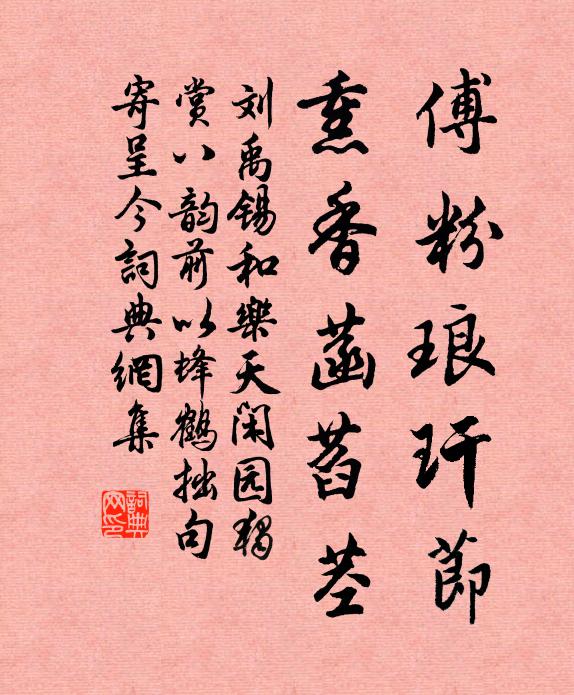 傅粉琅玕節
熏香菡萏茎
刘禹锡和樂天闲园独
赏八韵前以蜂鹤拙句
寄呈今詞典網集
詞典网印